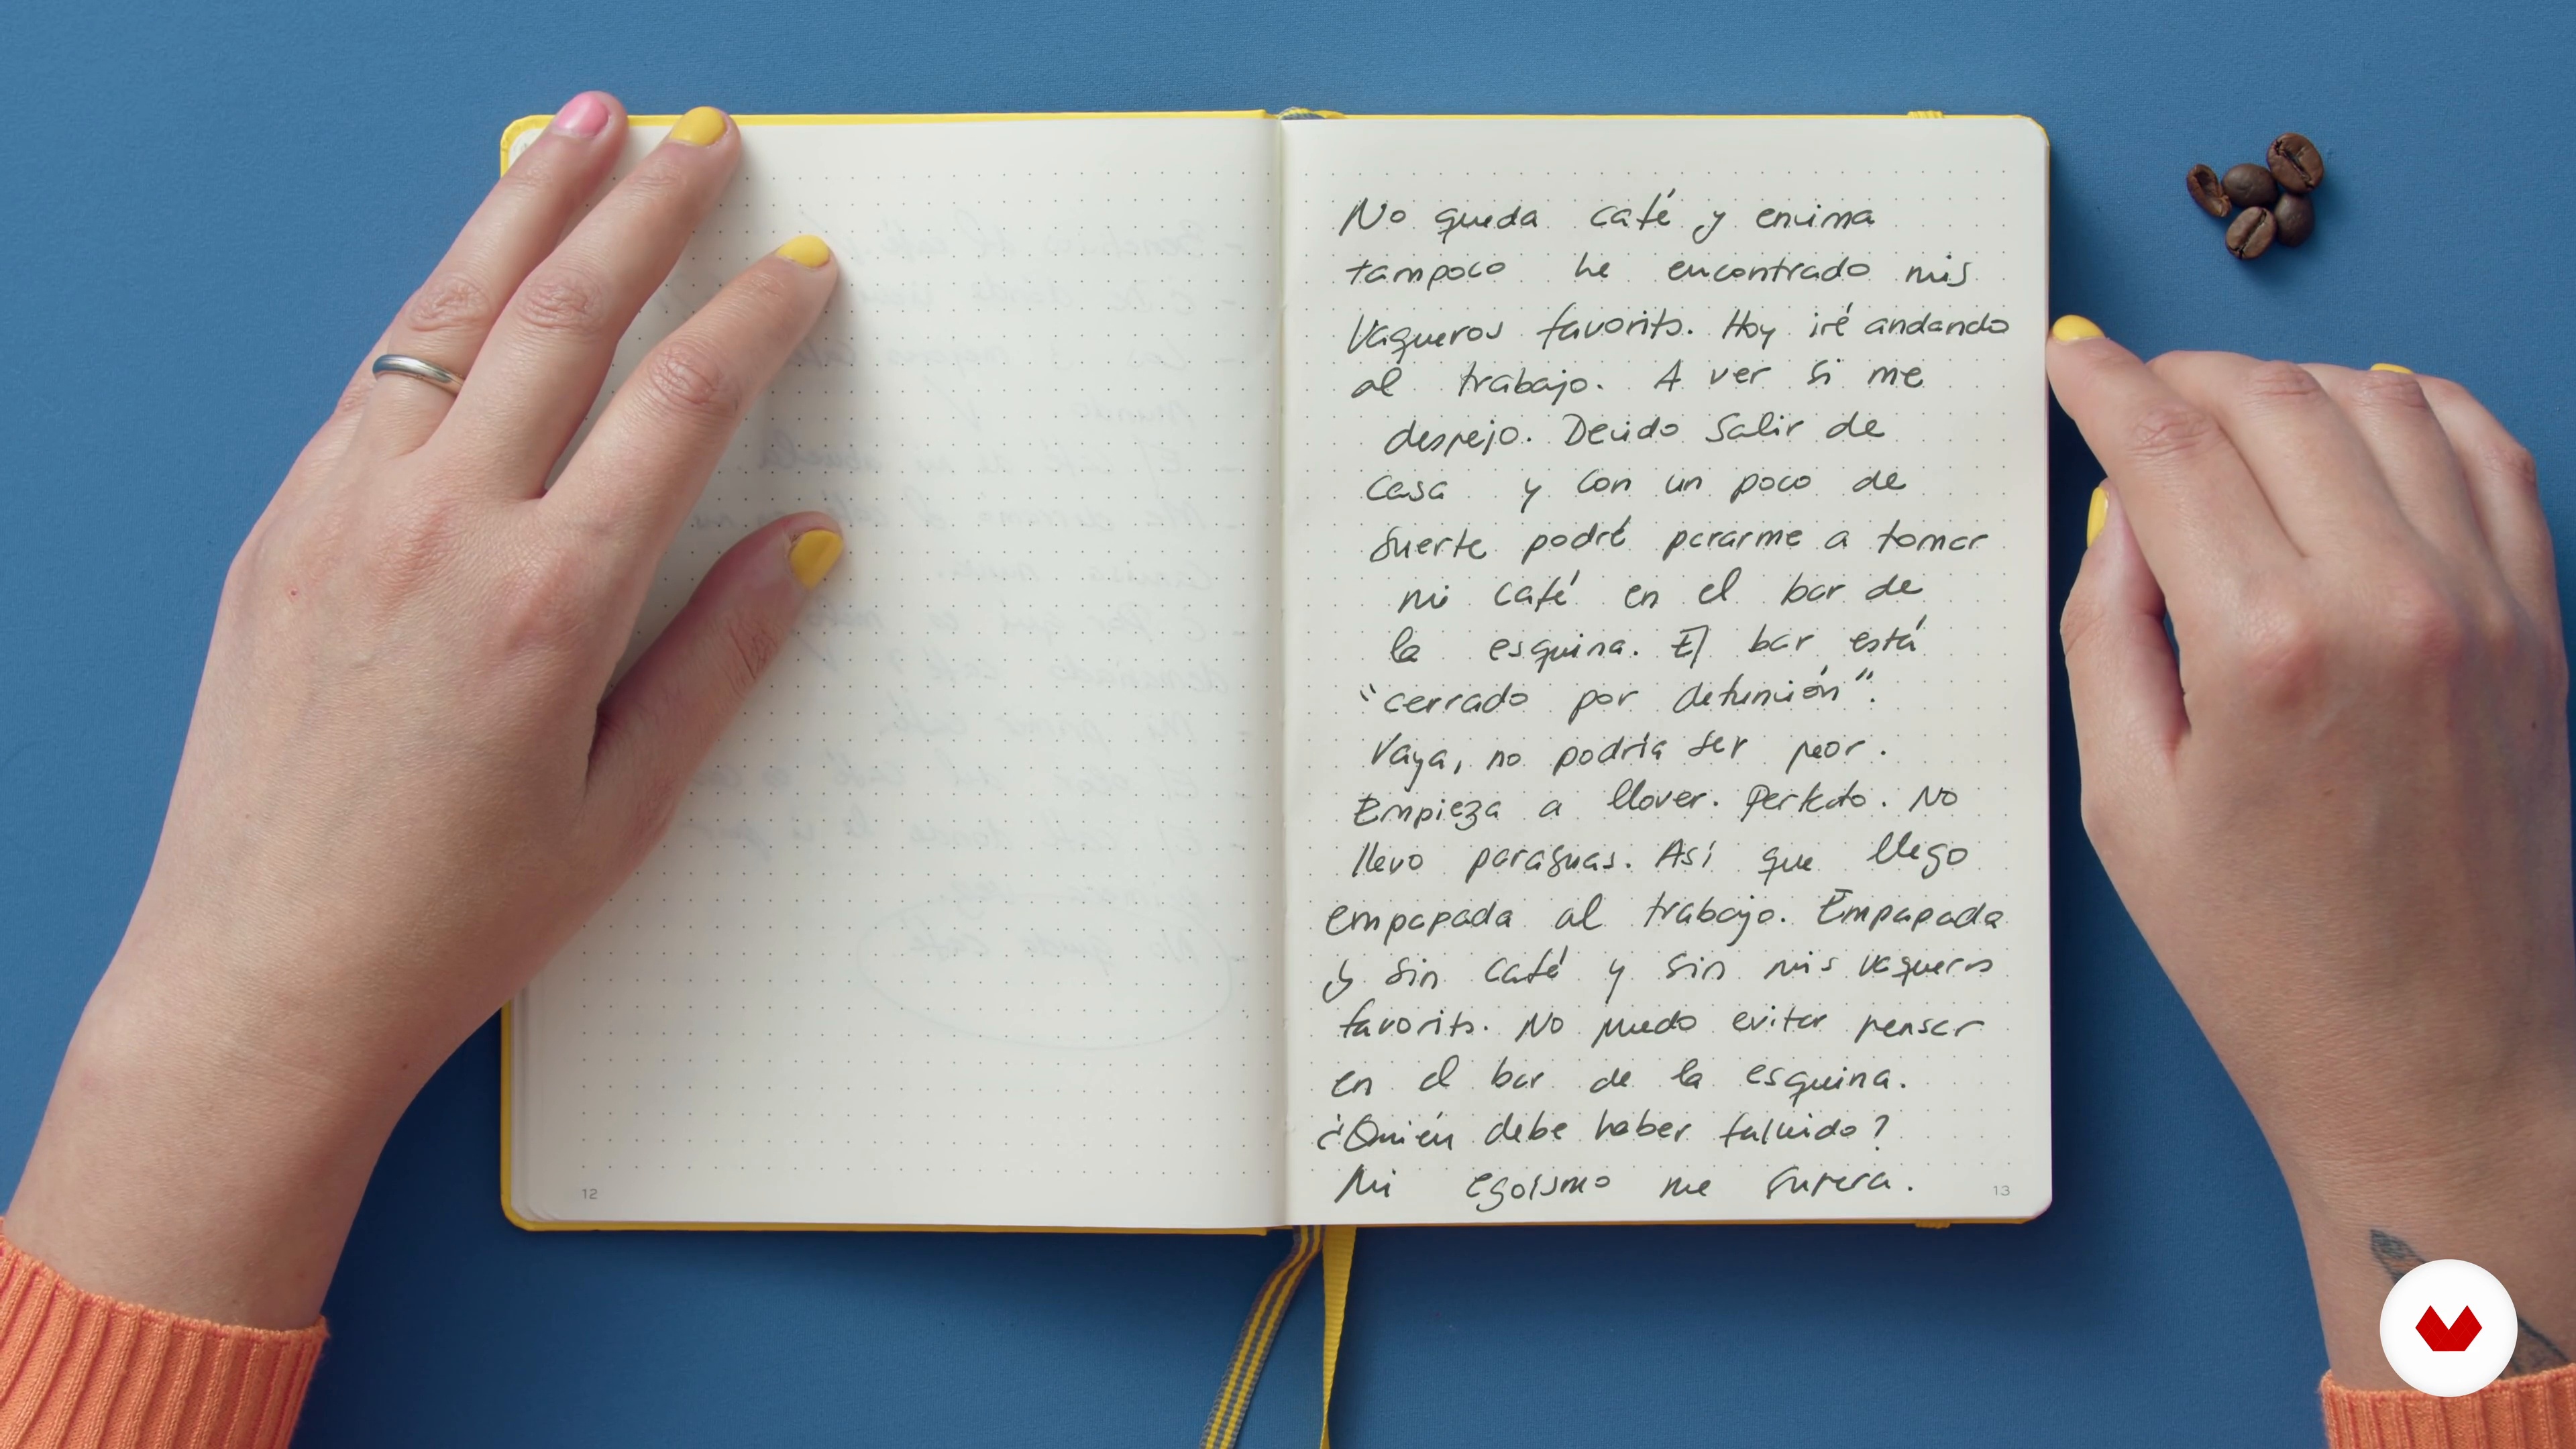 No queda café y encima
tampoco he encontrado mis
vaqueros favoritos. Hoy iré andando
al trabajo. A ver si me
despejo. Decido salir de
casa y con un poco de
suerte podré pararme a tomar
mi café en el bar de
la esquina. El bar está
"cerrado por defunción".
Vaya, no podría ser peor.
Empieza a llover. Perfecto. No
llevo paraguas. Así que llego
empapada al trabajo. Empapada
y sin café y sin mis vaqueros
favoritos. No puedo evitar pensar
en el bar de la esquina.
¿Quién debe haber fallecido?
Mi egoísmo me supera.
12
13